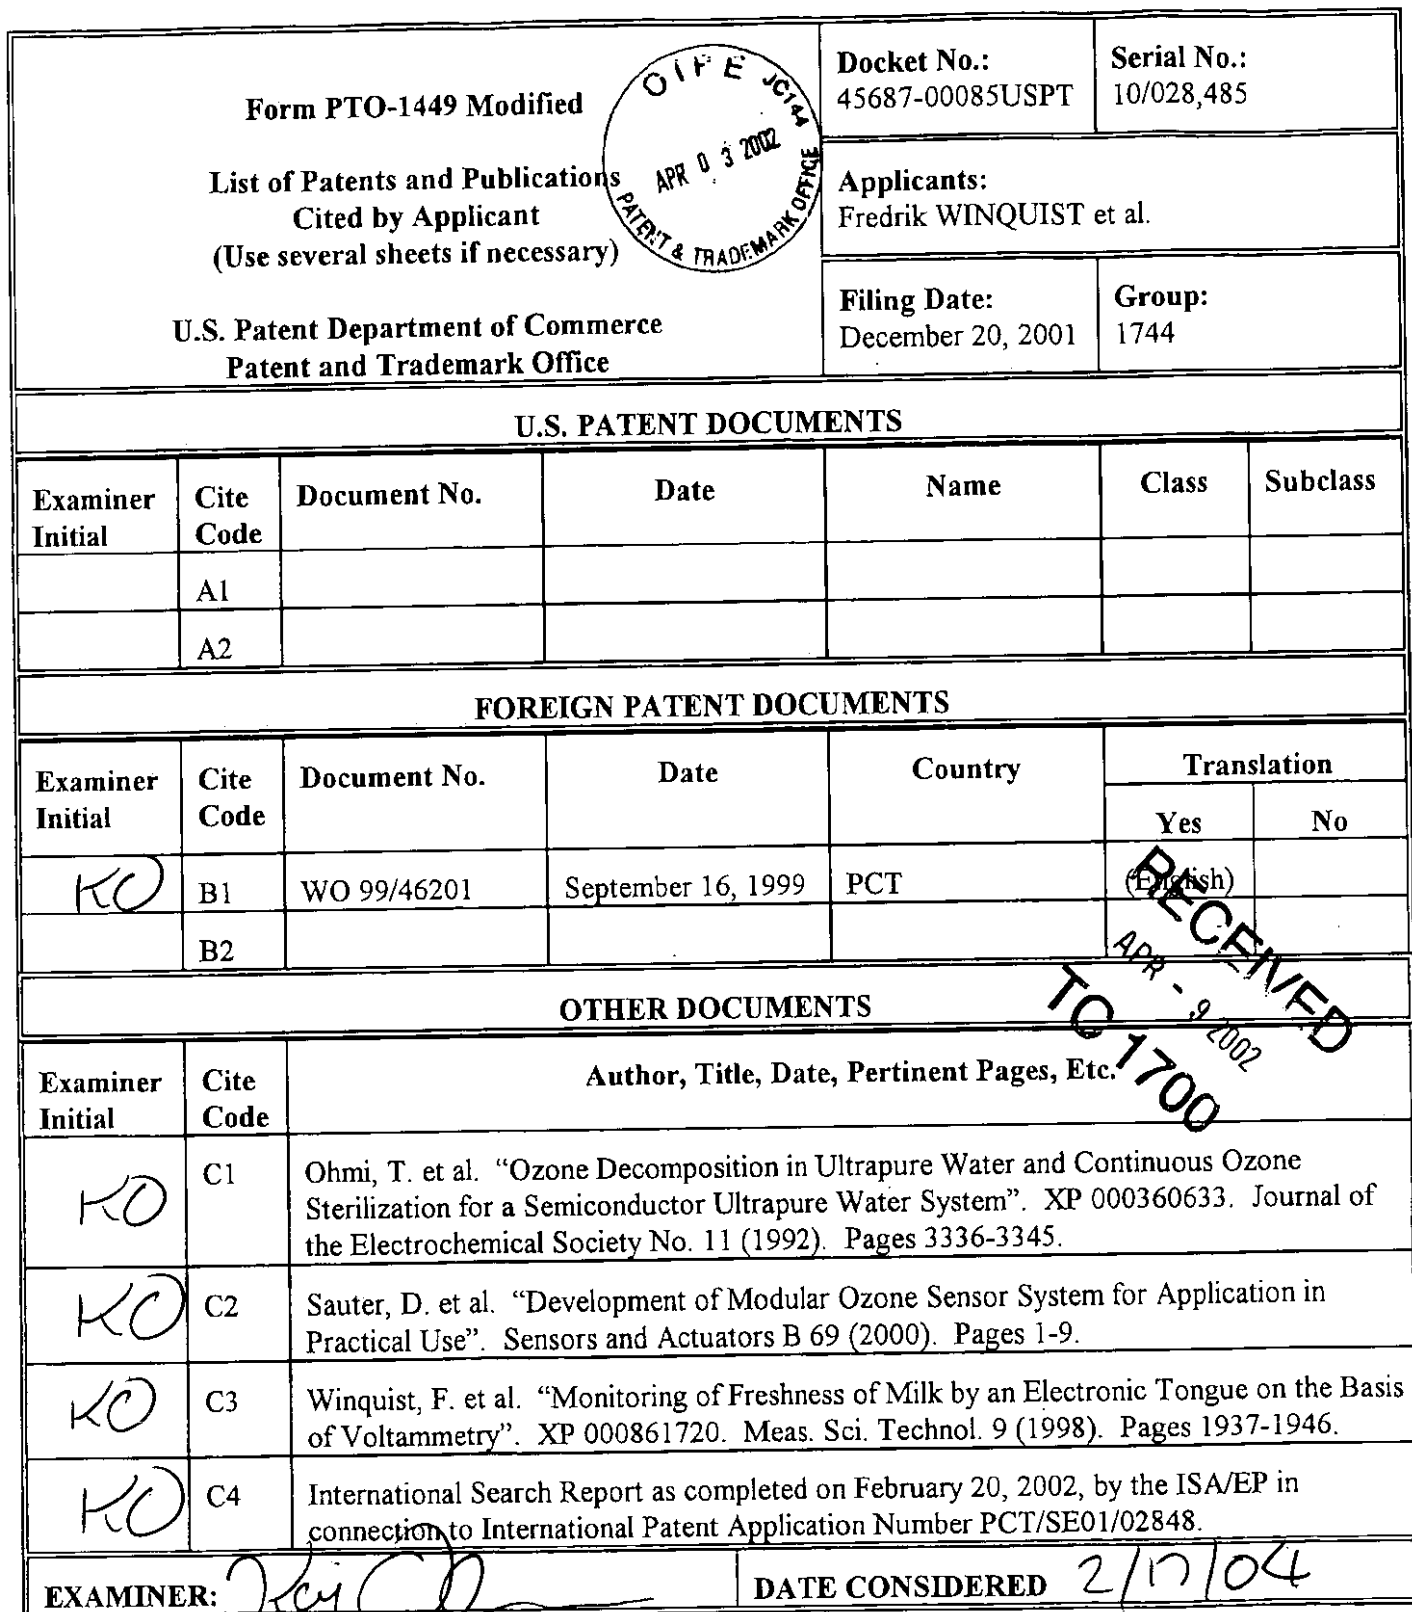 Form PTO-1449 Modified
List of Patents and Publications
Cited by Applicant
(Use several sheets if necessary)
U.S. Patent Department of Commerce
Patent and Trademark Office
OIPE JC144
APR 03 2002
PATENT & TRADEMARK OFFICE
Docket No.:
45687-00085USPT
Serial No.:
10/028,485
Applicants:
Fredrik WINQUIST et al.
Filing Date:
December 20, 2001
Group:
1744
U.S. PATENT DOCUMENTS
Examiner Initial
Cite Code
Document No.
Date
Name
Class
Subclass
A1
A2
FOREIGN PATENT DOCUMENTS
Examiner Initial
Cite Code
Document No.
Date
Country
Translation
Yes
No
KO B1 WO 99/46201 September 16, 1999 PCT (English)
B2
RECEIVED
APR - 9 2002
TC 1700
OTHER DOCUMENTS
Examiner Initial
Cite Code
Author, Title, Date, Pertinent Pages, Etc.
KO C1 Ohmi, T. et al. “Ozone Decomposition in Ultrapure Water and Continuous Ozone
Sterilization for a Semiconductor Ultrapure Water System”. XP 000360633. Journal of
the Electrochemical Society No. 11 (1992). Pages 3336-3345.
KO C2 Sauter, D. et al. “Development of Modular Ozone Sensor System for Application in
Practical Use”. Sensors and Actuators B 69 (2000). Pages 1-9.
KO C3 Winquist, F. et al. “Monitoring of Freshness of Milk by an Electronic Tongue on the Basis
of Voltammetry”. XP 000861720. Meas. Sci. Technol. 9 (1998). Pages 1937-1946.
KO C4 International Search Report as completed on February 20, 2002, by the ISA/EP in
connection to International Patent Application Number PCT/SE01/02848.
EXAMINER:
DATE CONSIDERED 2/17/04